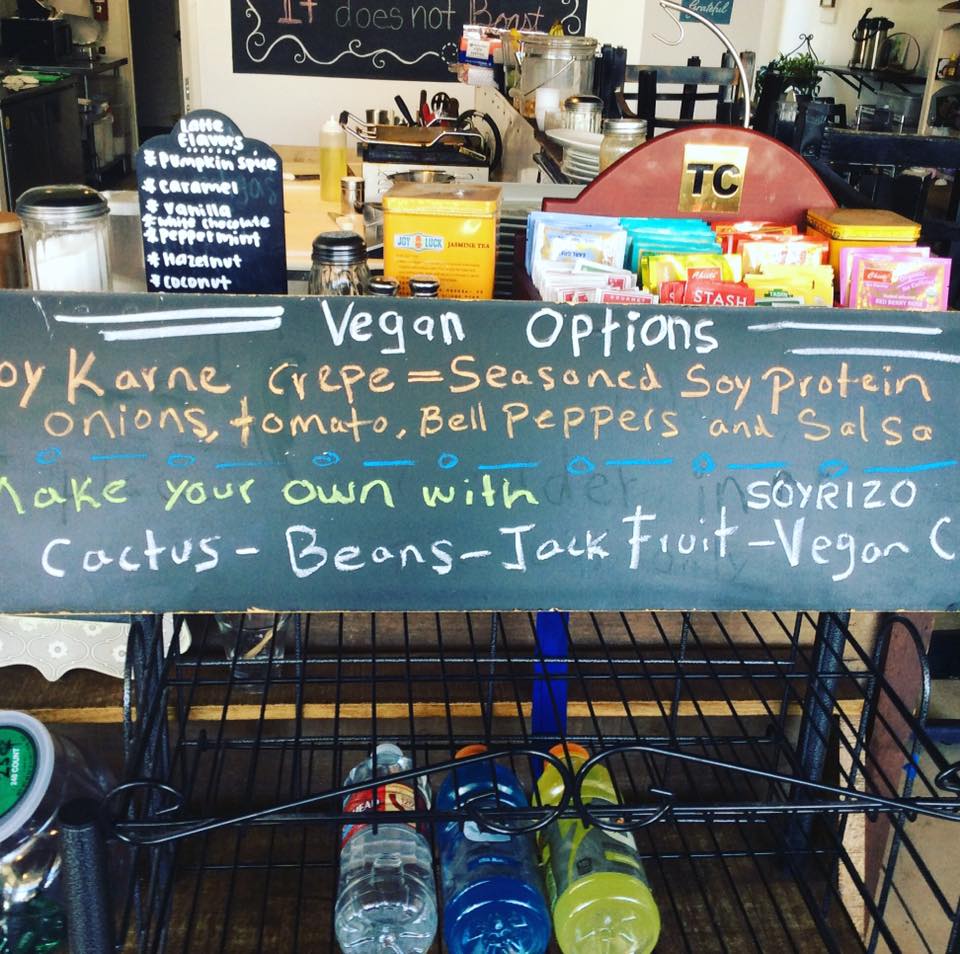 It does not Boast
Grateful
Latte
Flavors
* Pumpkin Spice
* Caramel
* Vanilla
* White Chocolate
* Peppermint
* Hazelnut
* Coconut
JOY LUCK JASMINE TEA
TC
STASH
Vegan Options
oy Karne Crepe = Seasoned Soy Protein
onions, tomato, Bell Peppers and Salsa
Make your own with SOYRIZO
Cactus - Beans - Jack Fruit - Vegan C